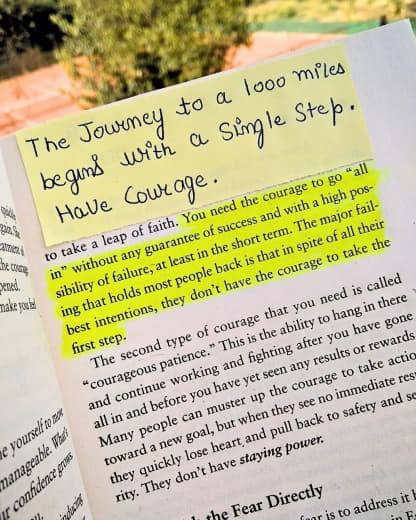 The Journey to a 1000 miles
begins with a Single Step.
Have Courage.
to take a leap of faith. You need the courage to go “all
in” without any guarantee of success and with a high pos-
sibility of failure, at least in the short term. The major fail-
ing that holds most people back is that in spite of all their
best intentions, they don’t have the courage to take the
first step.
The second type of courage that you need is called
“courageous patience.” This is the ability to hang in there
and continue working and fighting after you have gone
all in and before you have yet seen any results or rewards
Many people can muster up the courage to take actio
toward a new goal, but when they see no immediate res
they quickly lose heart and pull back to safety and se
rity. They don’t have staying power.
the Fear Directly
is to address it